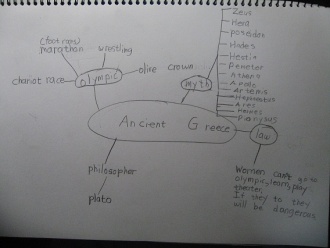 (foot race)
marathon
wrestling
chariot race
olympic
olive crown
myth
Zeus
Hera
poseidon
Hades
Hestia
Demeter
Athena
Apollo
Artemis
Hephaestus
Ares
Hermes
Dionysus
Ancient Greece
law
Women can't go to
olympic, learn, play
theater.
If they to they
will be dangerous
philosopher
plato